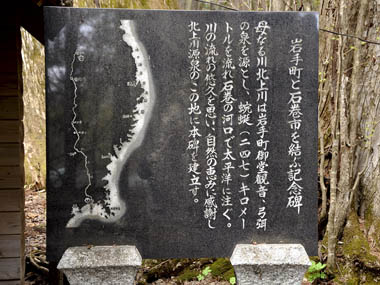 岩手町と石巻市を結ぶ記念碑
母なる川北上川は岩手町御堂観音、弓弭
の泉を源とし、蜿蜒(二四七)キロメー
トルを流れ石巻の河口で太平洋に注ぐ。
川の流れの悠久を思い、自然の恵みに感謝し
北上川源泉のこの地に本碑を建立す。